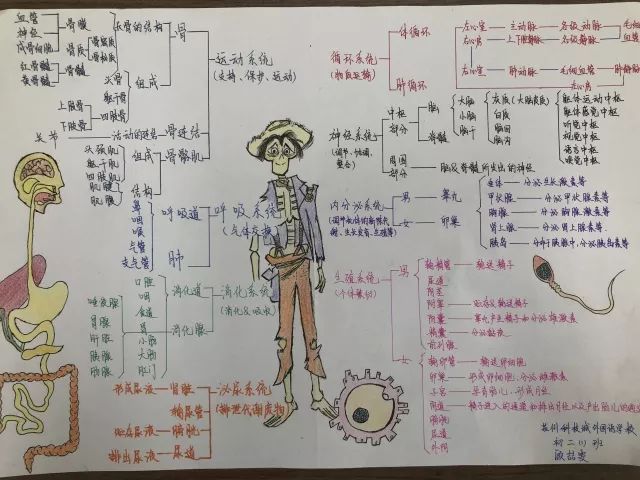 血管
神经
成骨细胞
骨膜
长骨的结构
骨
骨质
骨密质
骨松质
红骨髓
黄骨髓
骨髓
头骨
躯干骨
四肢骨
组成
上肢骨
下肢骨
关节
活动的连结
骨连结
头颈肌
躯干肌
四肢肌
组成
骨骼肌
肌腹
肌腱
结构
运动系统
(支持、保护、运动)
鼻
咽
喉
气管
支气管
呼吸道
肺
呼吸系统
(气体交换)
口腔
咽
食道
胃
小肠
大肠
肛门
消化道
唾液腺
胃腺
肝脏
胰腺
肠腺
消化腺
消化系统
(消化&吸收)
形成尿液
肾脏
输尿管
贮存尿液
膀胱
排出尿液
尿道
泌尿系统
(排泄代谢废物)
循环系统
(物质运输)
体循环
左心室
主动脉
各级动脉
毛细
血管
右心房
上下腔静脉
各级静脉
肺循环
右心室
肺动脉
毛细血管
肺静脉
左心房
神经系统
(调节、协调、
整合)
中枢
部分
脑
大脑
小脑
脑干
脊髓
灰质(大脑皮质)
白质
胸围
躯体运动中枢
躯体感觉中枢
听觉中枢
视觉中枢
语言中枢
嗅觉中枢
周围
部分
脑及脊髓所发出的神经
内分泌系统
男
睾丸
女
卵巢
垂体
分泌生长激素等
甲状腺
分泌甲状腺激素等
胸腺
分泌胸腺激素等
肾上腺
分泌肾上腺素等
胰岛
分布于胰腺中,分泌胰岛素等
生殖系统
(个体繁衍)
男
输精管
输送精子
尿道
阴茎
附睾
贮存及输送精子
睾丸产生精子和分泌雄激素
精囊
分泌黏液
前列腺
女
输卵管
输送卵细胞
卵巢
形成卵细胞,分泌雌激素
子宫
孕育胎儿,形成月经
阴道
精子进入的通道
膀胱
尿道
外阴
苏州科技城外国语学校
初二(1)班